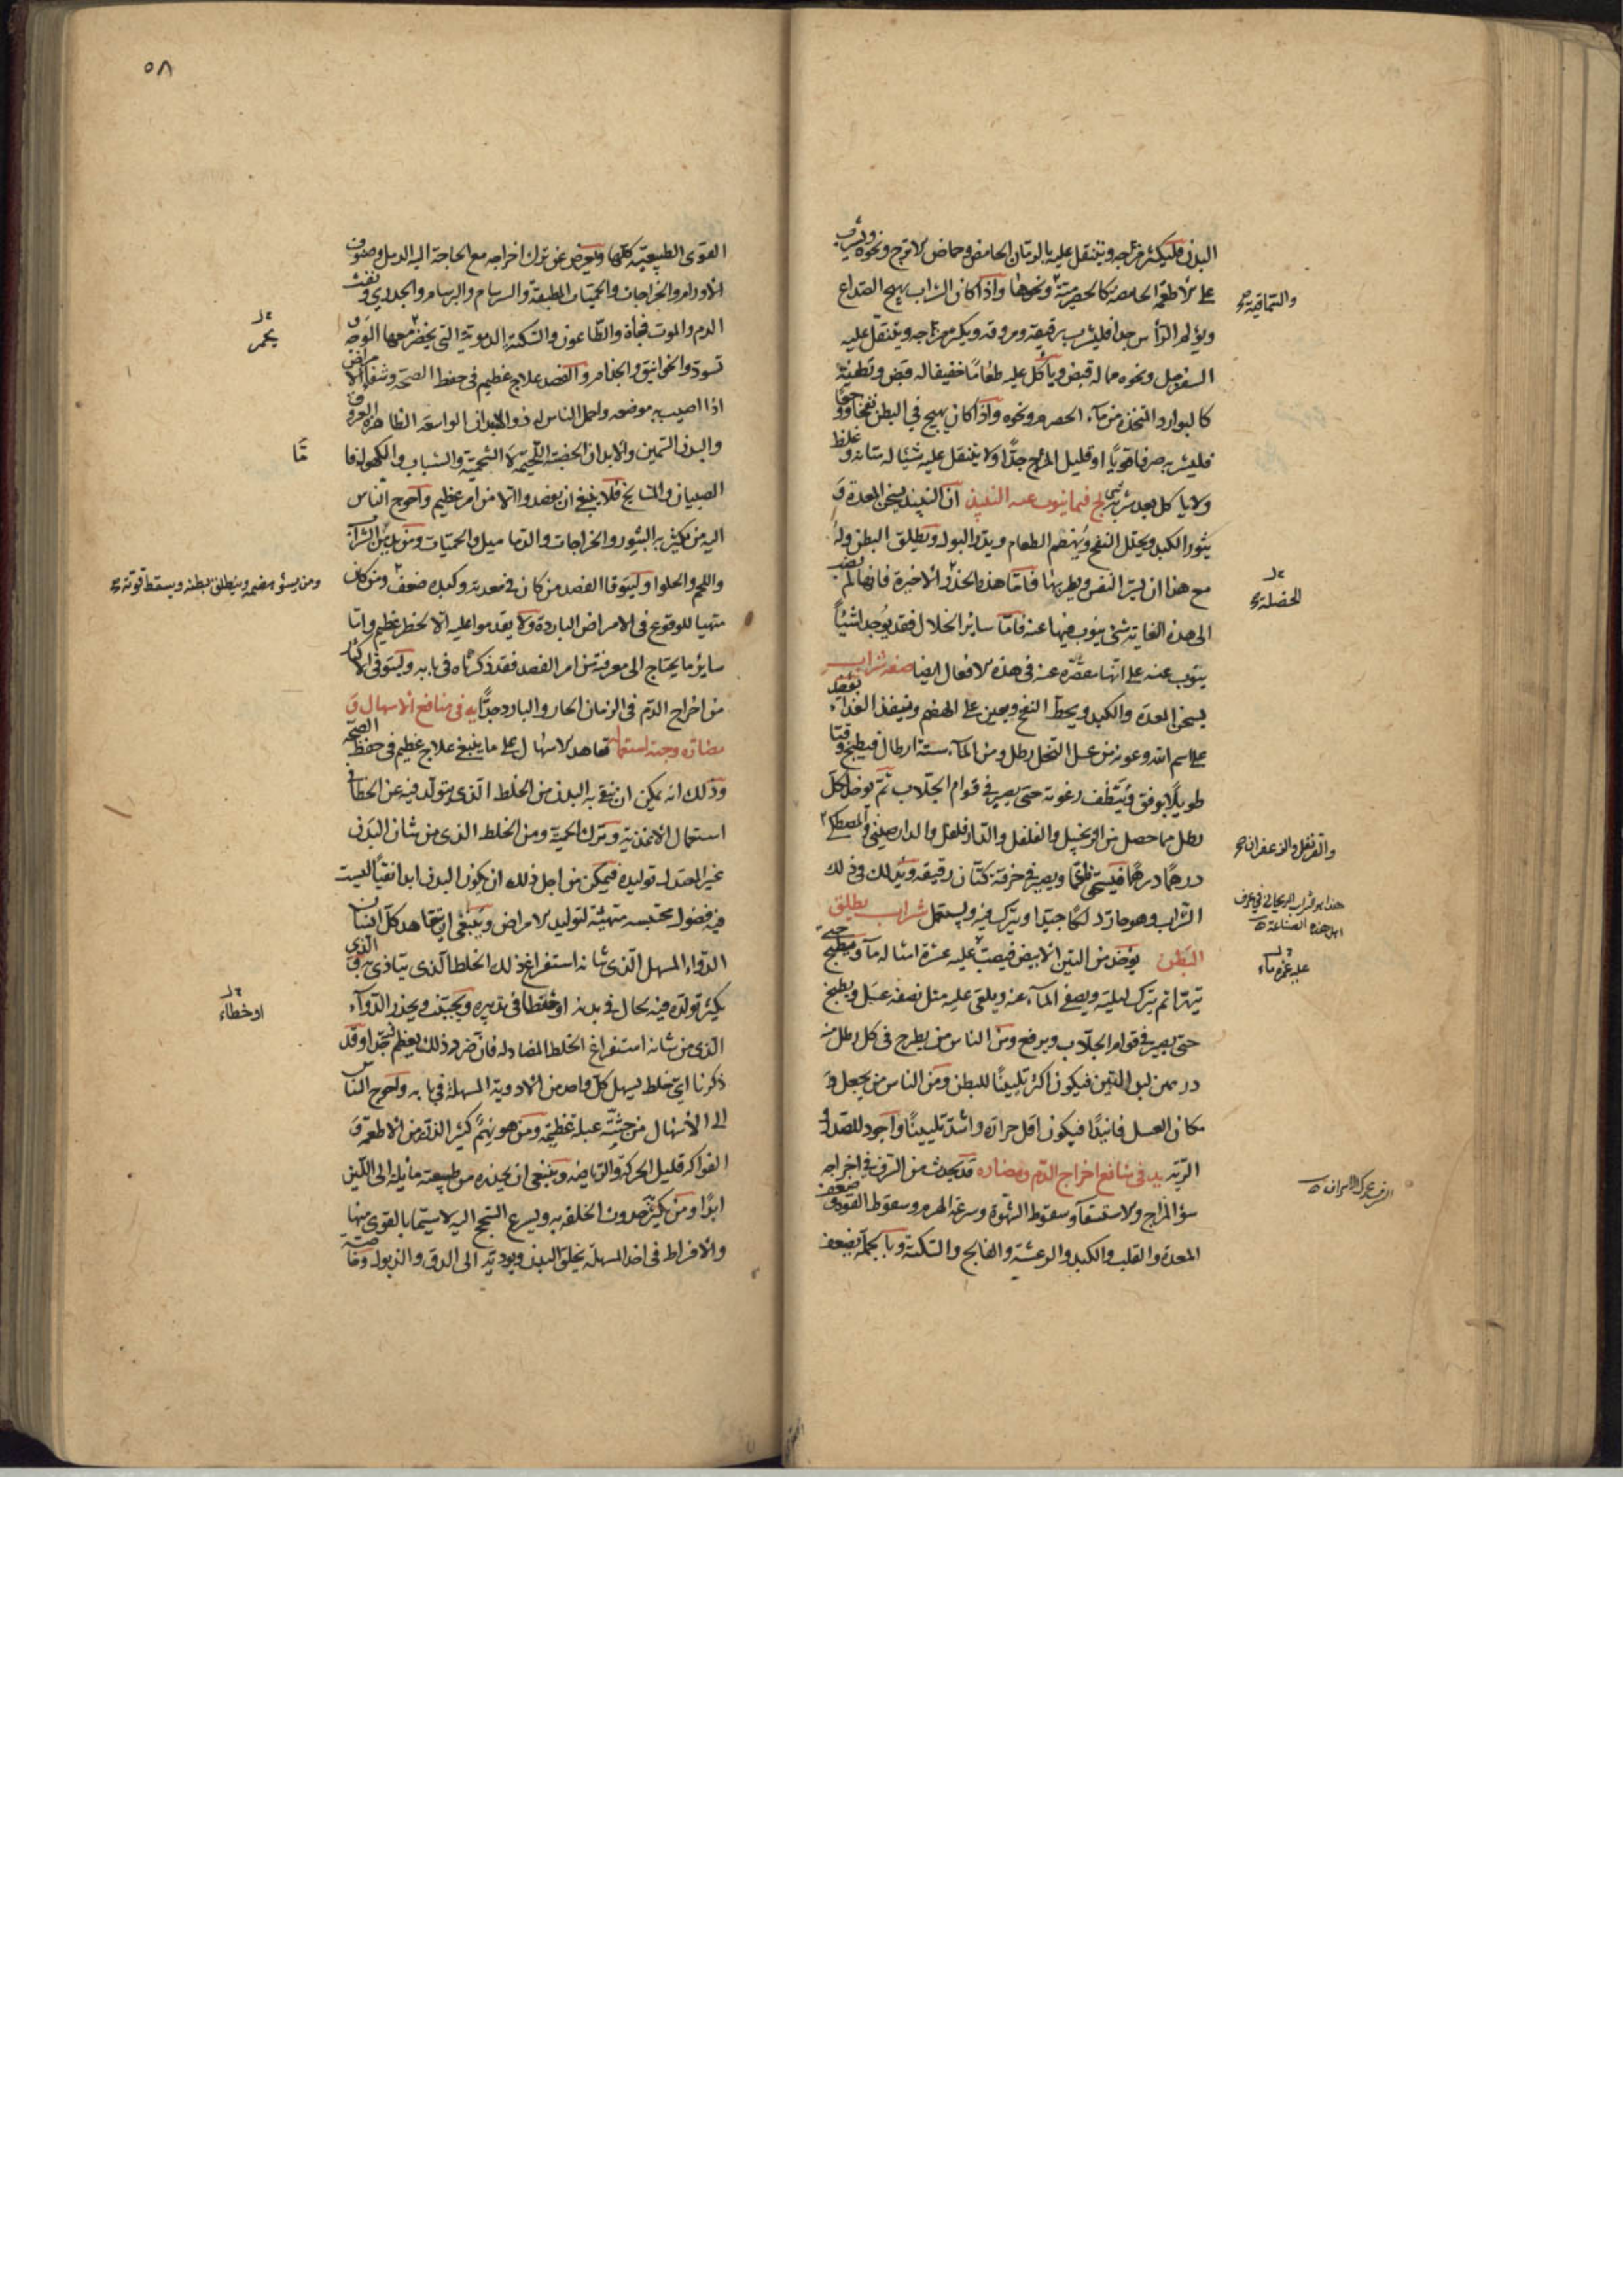 البدن فليكثر مزاجه ويتنقل عليه بالرمان الحامض وحماض الاترج ونحوه ويشرب
على الاطعمة الحامضة كالحصرمية ونحوها واذا كان الشراب يهيج الصداع
والسماقية صح
ويؤلم الرأس جدا فليشرب رقيقه ومروقه ويكثر مزاجه ويتنقل عليه
السفرجل ونحوه مما له قبض ويأكل عليه طعامًا خفيفا له قبض وتطفية
كالبوارد المتخذة من ماء الحصرم ونحوه واذا كان يهيج في البطن نفخا ووجعًا
فليشربه صرفا قويًا او قليل المزاج جدًّا ولا يتنقل عليه شيئا له متانه وغلظ
ولا ياكل بعد شربه شيئا فيما ينوب عن النبيذ ان النبيذ يسخن المعدة وَ
يثور الكبد ويحلل النفخ ويهضم الطعام ويدر البول ويطلق البطن وله
مع هذا ان يسر النفس ويطربها فامّا هذه الاخيرة فانها لم
الخصلة صح
الى هذه الغاية شئ ينوب فيها عنه فامّا ساير الخلال فقد يوجد اشيئاً
ينوب عنه على انها مقصّرة عنه في هذه الافعال ايضا صفة شراب
يسخن المعدة والكبد ويحط النفخ ويعين على الهضم وتنفيذ الغذاء يؤخذ
على اسم الله وعونه من عسل النحل رطل ومن الماء ستة ارطال فيطبخ وقتا
طويلًا برفق وينظف رغوته حتى يصير في قوام الجلاب ثم يؤخذ لكل
رطل مما حصل من الزنجبيل والفلفل والدار فلفل والدار صيني والمصطكي
والقرنفل والزعفران صح
درهمًا درهمًا فيسحق ناعما ويصير في خرقة كتان رقيقه ويدلك في ذلك
هذا هو شراب الريحاني في عرف
اهل هذه الصناعة
الشراب وهو حار دلكًا جيّدا ويترك فيه ويستعمل شراب يطلق
البَطن يؤخذ من التين الابيض فيصب عليه عشرة امثاله ماء ويطبخ حتى
عليه غمره ماء
يتهرّا ثم يترك ليلته ويصفى الماء عنه ويلقى عليه مثل نصفه عسَل ويطبخ
حتى يصير في قوام الجلاب ويرفع ومن الناس من يطرح في كل رطل منه
درهمين لبن التين فيكون اكثر تليينًا للبطن ومن الناس من يجعل فيه
مكان العسل فانيدًا فيكون اقل حرارة واشد تليينًا واجود للصدر و
الرّية يد في منافع اخراج الدّم ومضاره قد يحدث من السرف في اخراجه
السرف محركة الاسراف
سؤ المزاج والاستسقاء وسقوط الشهوة وسرعة الهرم وسقوط القوة وضعف
المعدة والقلب والكبد والرعشة والفالج والسكتة وبالجملة يضعف
٥٨
القوى الطبيعية كلها ويعرض عن ترك اخراجه مع الحاجة اليه الدمل وصنوف
الأورام والخراجات والحميّات المطبقة والسرسام والبرسام والجدري ونفث
الدم والموت فجأة والطّاعون والسّكتة الدموية التي يخضر معها الوجه و
يحمر
تسود والخوانيق والجذام والفصد علاج عظيم في حفظ الصحّة وشفاء الامراض
اذا اصيب به موضعه واحمل الناس له ذوو الابدان الواسعة الظاهرة العروق
والبدن السّمين والابدان الخصبة اللّحيمة لا الشحميّة والشباب والكهول فا
مّا
الصبيان والمشايخ فلا ينبغي ان يفصدوا الا من امر عظيم واحوج الناس
اليه من يكثر به البثور والخراجات والدّماميل والحميّات ومن يدمن الشراب
واللحم والحلوا وليتوقا الفصد من كان في معدته وكبده ضعف ومن كان
ومن يسؤ هضمه وينطلق بطنه ويسقط قوته صح
متهيا للوقوع في الامراض الباردة ولا يقدموا عليه الا لخطر عظيم وامّا
سائر ما يحتاج الى معرفته من امر الفصد فقد ذكرناه في بابه وليتوقى الاكثار
من اخراج الدّم في الزمان الحار والبارد جدًّا يه في منافع الاسهال وَ
مضاره وجهة استعماله تعاهد الاسهال على ما ينبغي علاج عظيم في حفظ الصحة
وذلك انه يمكن ان ينقى به البدن من الخلط الّذي يتولّد فيه عن الخطأ في
استعمال الاغذية وترك الحمية ومن الخلط الذي من شان البَدن
غير المعتدل توليده فيمكن من اجل ذلك ان يكون البدن ابدا نقيًا ليست
فيه فضول محتبسه متهيئة لتوليد الامراض وينبغي ان يتعاهد كل انسان
الدّواء المسهل الّذي شانه استفراغ ذلك الخلط الّذي يتاذى به و الّذي
يكثر تولّده فيه بحال في بدنه او خطأ في تدبيره ويجتنب ويحذر الدّواء
او خطاء
الّذي من شانه استفراغ الخلط المضاد له فان ضرر ذلك يعظم جدا وقد
ذكرنا اي خلط يسهل كل واحد من الادوية المسهلة في بابه واحوج الناس
الى الأسهال من جثّته عبلة عظيمة ومن هو نهم كثير الدّته من الاطعمة و
الفواكه قليل الحركة والرياضه وينبغي ان يحذره من طبيعته مائله الى اللين
ابدًا ومن يكثر صدور الخلفة به ويسرع السّحج اليه لا سيّما بالقوى منها
والافراط في اخذ المسهلة يخلق البدن ويوديه الى الدق والذبول وخاصة